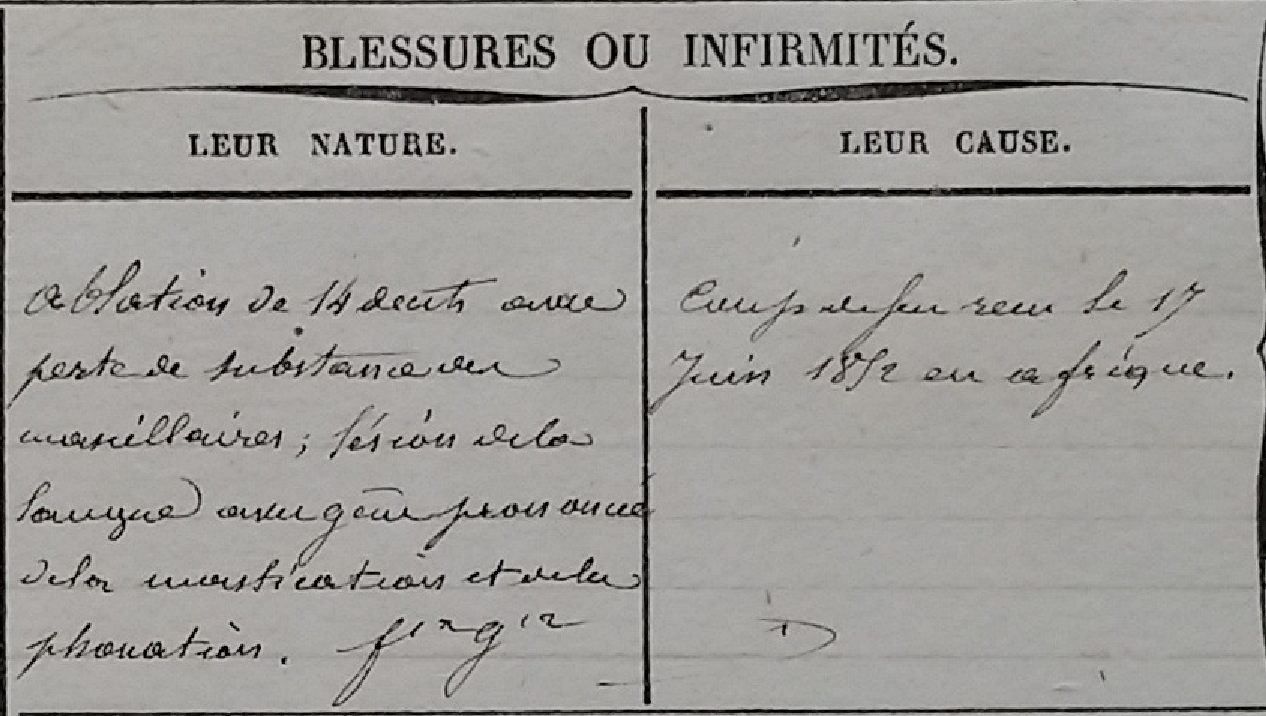 BLESSURES OU INFIRMITÉS.
LEUR NATURE.
ablation de 14 dents avec
perte de substance des
maxillaires ; lésion de la
langue avec gêne prononcée
de la mastication et de la
phonation.
LEUR CAUSE.
Coup de feu reçu le 17
Juin 1852 en afrique.